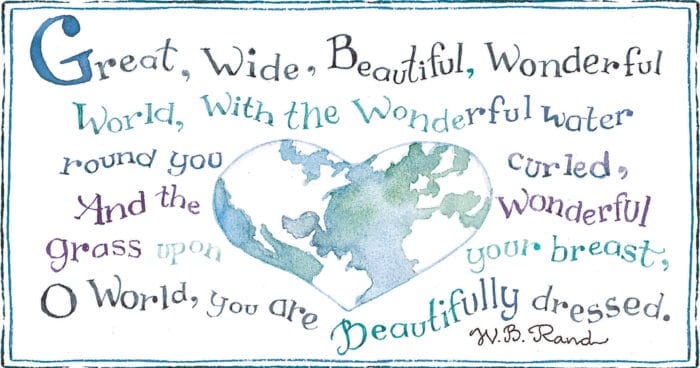 Great, Wide, Beautiful, Wonderful
World, With the Wonderful water
round you curled,
And the Wonderful
grass upon your breast,
O World, you are Beautifully dressed.
W.B. Rand